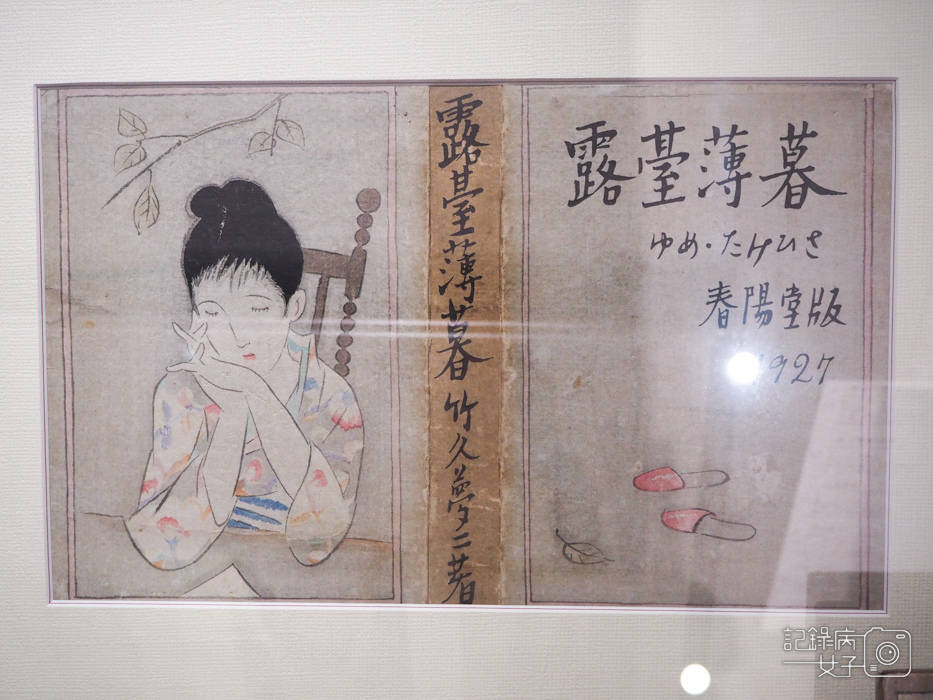 露臺薄暮
ゆめ・たけひさ
春陽堂版
1927
露臺薄暮 竹久夢二著
記錄病
女子